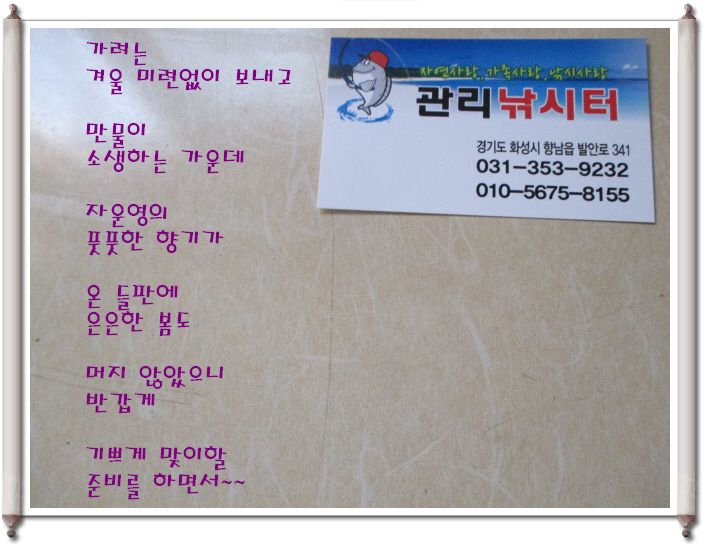 가려는
겨울 미련없이 보내고
만물이
소생하는 가운데
자운영의
풋풋한 향기가
온 들판에
은은한 봄도
머지 않았으니
반갑게
기쁘게 맞이할
준비를 하면서~~
자연사랑, 가족사랑, 낚시사랑
관리낚시터
경기도 화성시 향남읍 발안로 341
031-353-9232
010-5675-8155